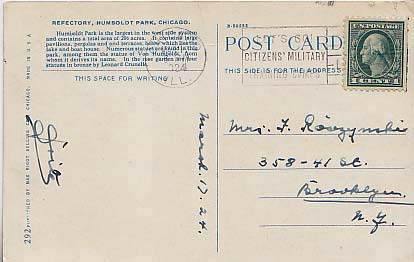 REFECTORY, HUMBOLDT PARK, CHICAGO.
Humboldt Park is the largest in the west side system
and contains a total area of 206 acres. It contains large
pavilions, pergolas and and terraces, below which lies the
lake and boat house. Numerous statues are found in this
park, among them the statue of Von Humboldt, from
whom it derives its name. In the rose garden are four
statues in bronze by Leonard Crunelle.
THIS SPACE FOR WRITING
POST CARD
THIS SIDE IS FOR THE ADDRESS
CITIZENS MILITARY
ILL.
1 CENT 1
MADE IN U.S.A.
CHICAGO.
292
March 17. 24.
Mrs. F.
358-41 St.
Brooklyn
N.Y.